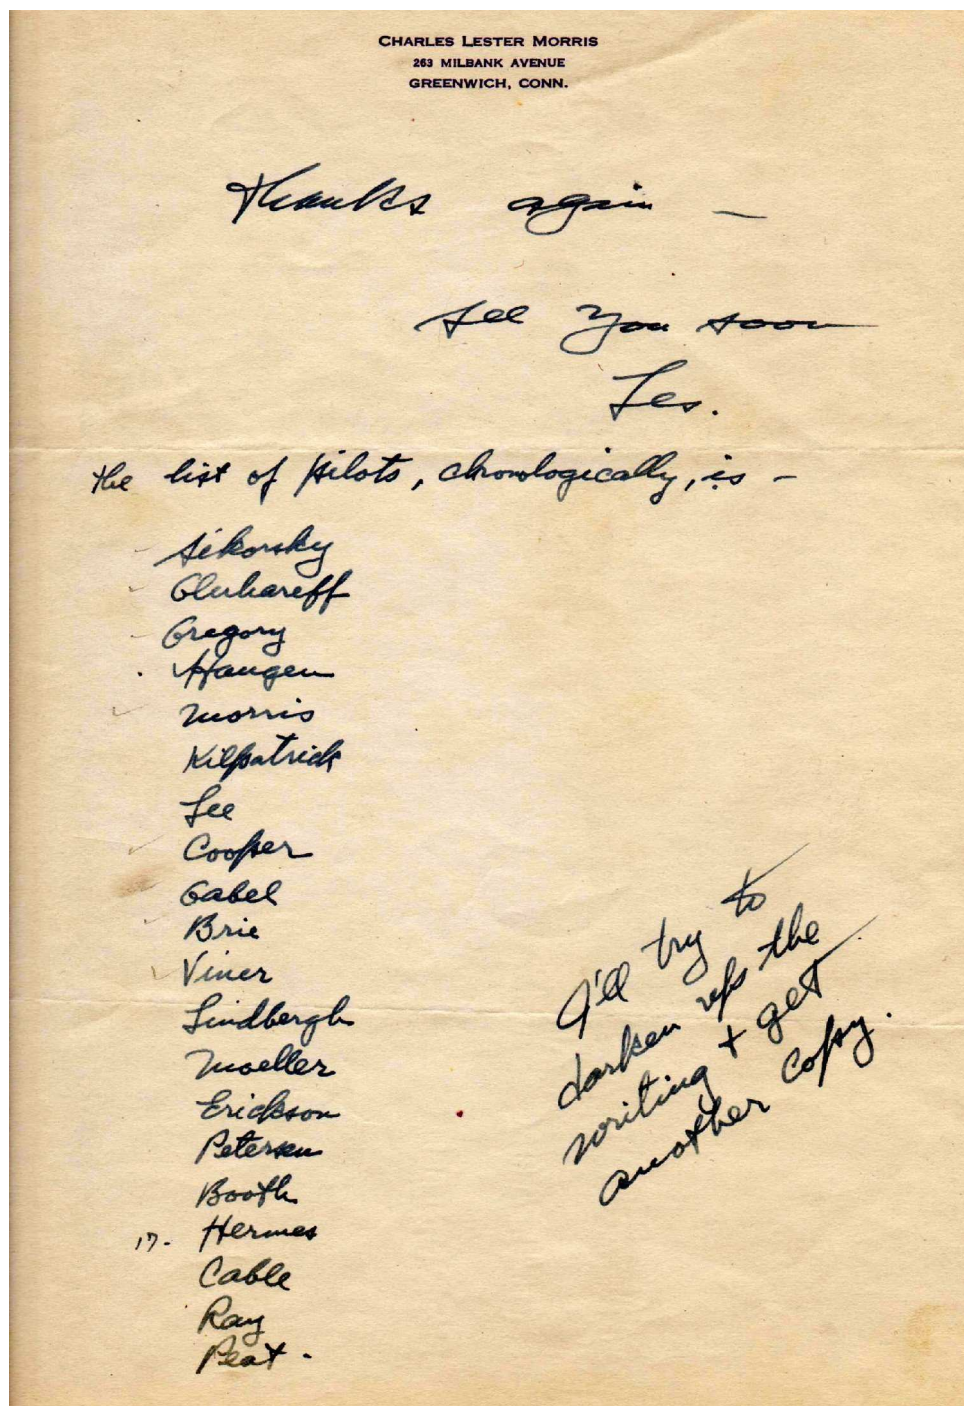 CHARLES LESTER MORRIS
263 MILBANK AVENUE
GREENWICH, CONN.
Thanks again —
See you soon
Les.
The list of pilots, chronologically, is —
Sikorsky
Gluhareff
Gregory
Haugen
Morris
Kilpatrick
Lee
Cooper
Gabel
Brie
Viner
Lindbergh
Moeller
Erickson
Petersen
Booth
17. Hermes
Cable
Ray
Peat.
I'll try to
darken up the
writing + get
another copy.